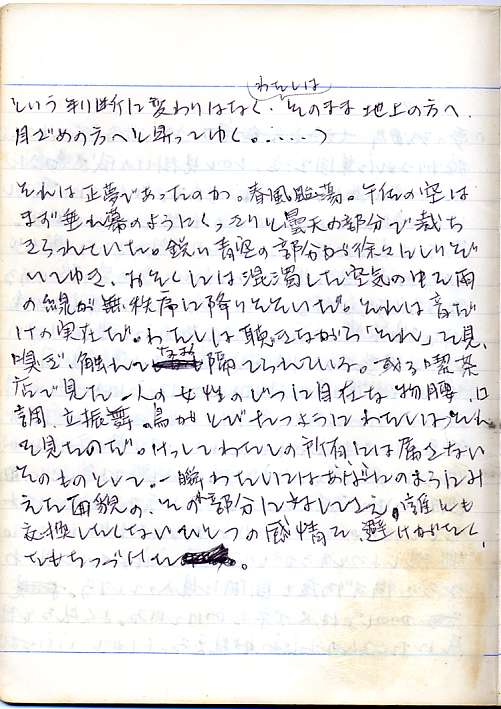 わたしは
という判断に変わりはなく、そのまま地上の方へ、
目ざめの方へと昇ってゆく。……)
それは正夢であったのか。春風駘蕩。午後の空は
まず垂れ幕のようにくっきりと曇天の部分で裁ち
きられていた。鋭い青空の部分が徐々にしりぞ
いてゆき、おそくには混濁した空気の中で雨
の線が無秩序に降りそそいだ。それは音だ
けの実在だ。わたしは聴きながら「それ」を見、
嗅ぎ、触れて なお 隔てられている。或る喫茶
店で見た一人の女性のじつに自在な物腰、口
調、立振舞。鳥がとびたつようにわたしはそれ
を見たのだ。けっしてわたしの所有には属さない
そのものとして。一瞬わたしにはあばたのようにみ
えた面貌の、その部分に対してさえ、誰とも
交換したくないひとつの感情を、避けがたく、
たもちつづけた。